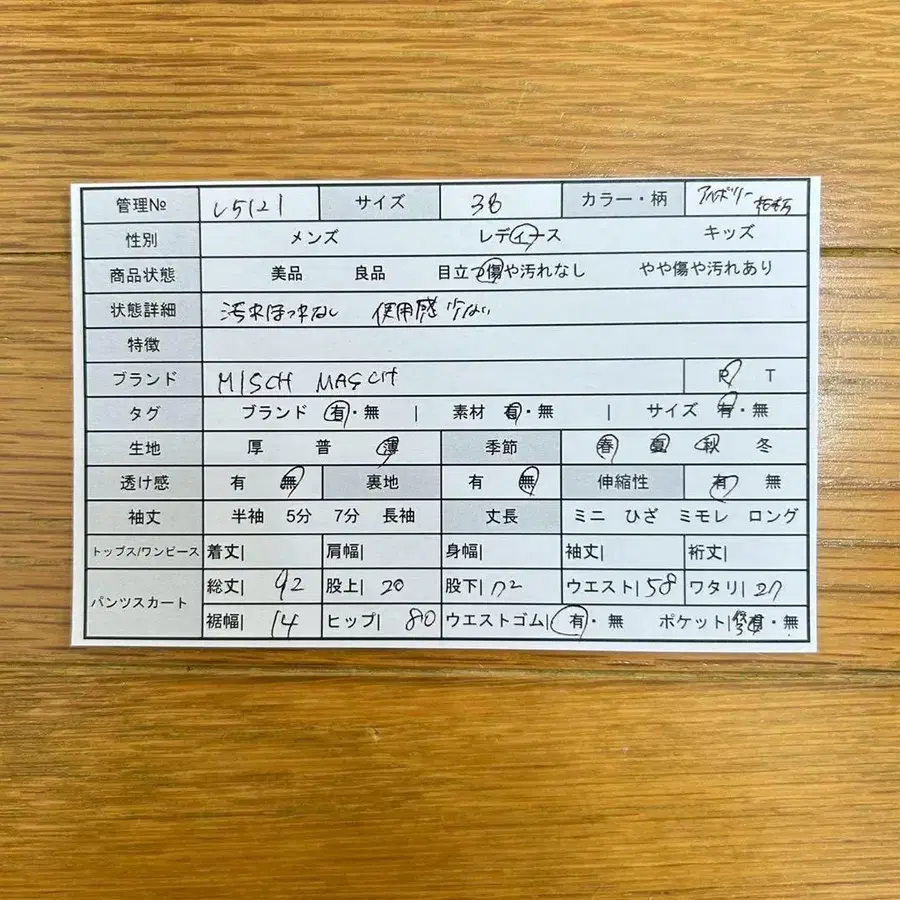 管理№ L5121 サイズ 38 カラー・柄 アイボリー
性別 メンズ レディース キッズ
商品状態 美品 良品 目立つ傷や汚れなし やや傷や汚れあり
状態詳細 汚れほつれなし 使用感少ない
特徴
ブランド MISCH MASCH R T
タグ ブランド 有・無 | 素材 有・無 | サイズ 有・無
生地 厚 普 薄 季節 春 夏 秋 冬
透け感 有 無 裏地 有 無 伸縮性 有 無
袖丈 半袖 5分 7分 長袖 丈長 ミニ ひざ ミモレ ロング
トップス/ワンピース 着丈| 肩幅| 身幅| 袖丈| 裄丈|
パンツスカート 総丈| 92 股上| 20 股下| 72 ウエスト| 58 ワタリ| 27
裾幅| 14 ヒップ| 80 ウエストゴム| 有・無 ポケット| 有・無